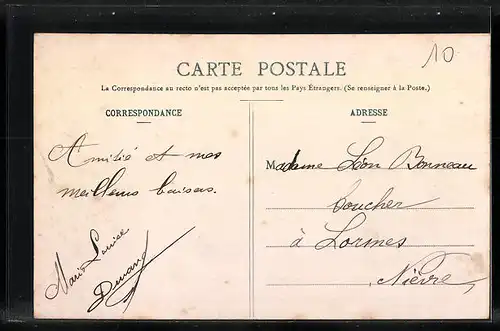 10
CARTE POSTALE
La Correspondance au recto n'est pas acceptée par tous les Pays Étrangers. (Se renseigner à la Poste.)
CORRESPONDANCE
Amitié et mes
meilleurs baisers.
Marie Louise
ADRESSE
Madame Léon Bonneau
boucher
à Lormes
Nièvre